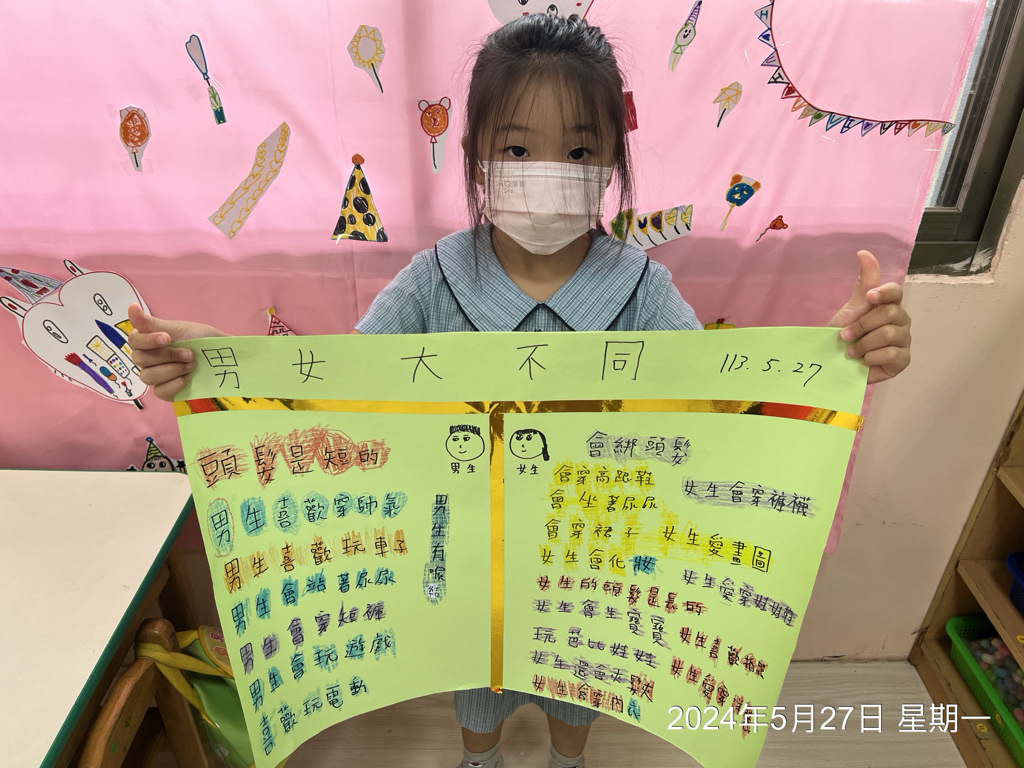 男女大不同 113.5.27
男生
頭髮是短的
男生喜歡穿帥氣
男生喜歡玩車子
男生會站著尿尿
男生會穿短褲
男生會玩遊戲
喜歡玩電動
男生有喉結
女生
會綁頭髮
會穿高跟鞋
會坐著尿尿
會穿裙子
女生會化妝
女生的頭髮是長的
女生會生寶寶
玩芭比娃娃
女生還會
女生會穿內衣
女生會穿褲襪
女生愛畫圖
女生愛穿娃娃鞋
女生喜歡
女生愛穿
2024年5月27日 星期一